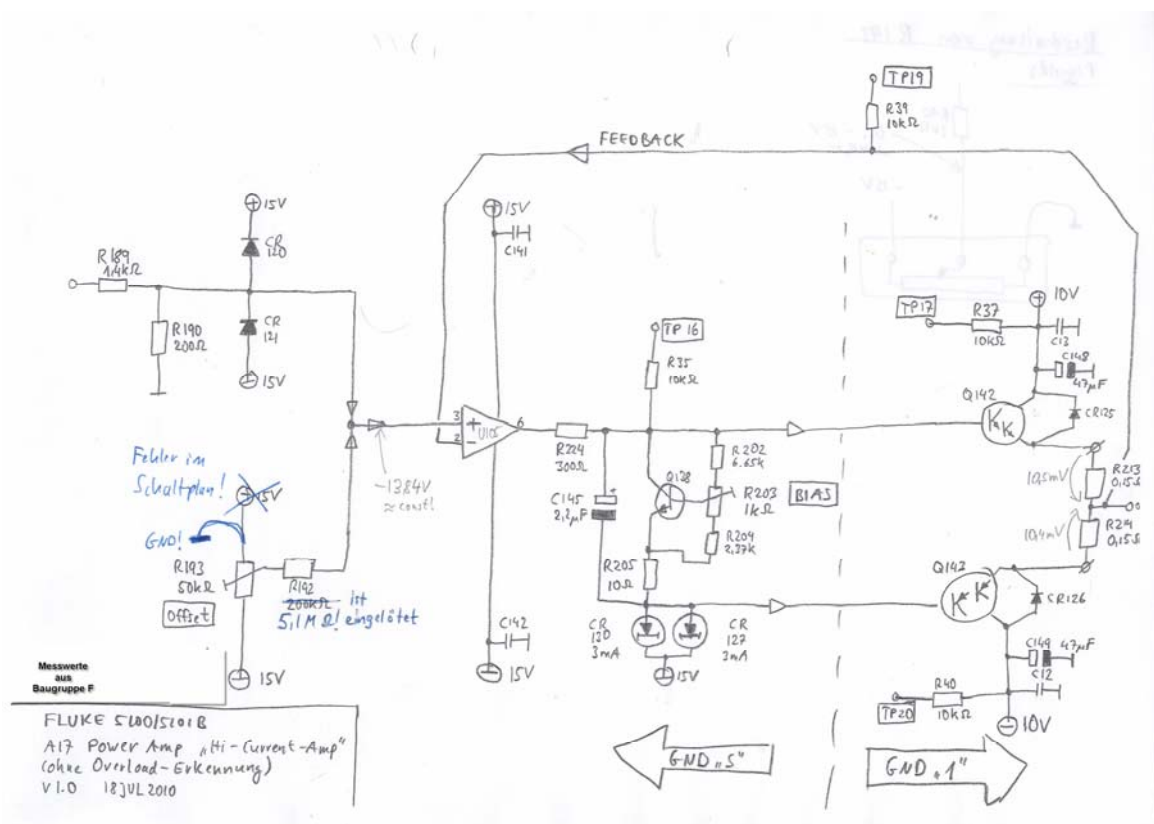 TP19
R39
10kΩ
FEEDBACK
15V
CR
120
R189
1,4kΩ
R190
200Ω
CR
121
15V
15V
C141
TP16
R35
10kΩ
TP17
R37
10kΩ
10V
C13
C148
47µF
Q142
CR125
3
2
6
U105
R224
300Ω
R202
6.65k
Q128
R203
1kΩ
BIAS
C145
2,2µF
R204
2,37k
R205
10Ω
10,5mV
0,15Ω
10,4mV
0,15Ω
Fehler im
Schaltplan!
15V
GND!
-13.84V
≈const!
R193
50kΩ
Offset
R192
200kΩ ist
5,1MΩ! eingelötet
15V
C142
15V
CR
3mA
CR
127
3mA
15V
Q143
CR126
C149
47µF
C12
R40
10kΩ
TP20
10V
Messwerte
aus
Baugruppe F
FLUKE 5200/5201B
A17 Power Amp „Hi-Current-Amp"
(ohne Overload-Erkennung)
V1.0 18JUL2010
GND „5"
GND „1"